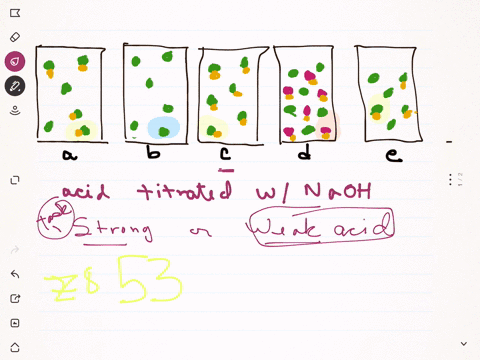 a b c d e
acid titrated w/ NaOH
Strong or Weak acid
z8 53
1/2